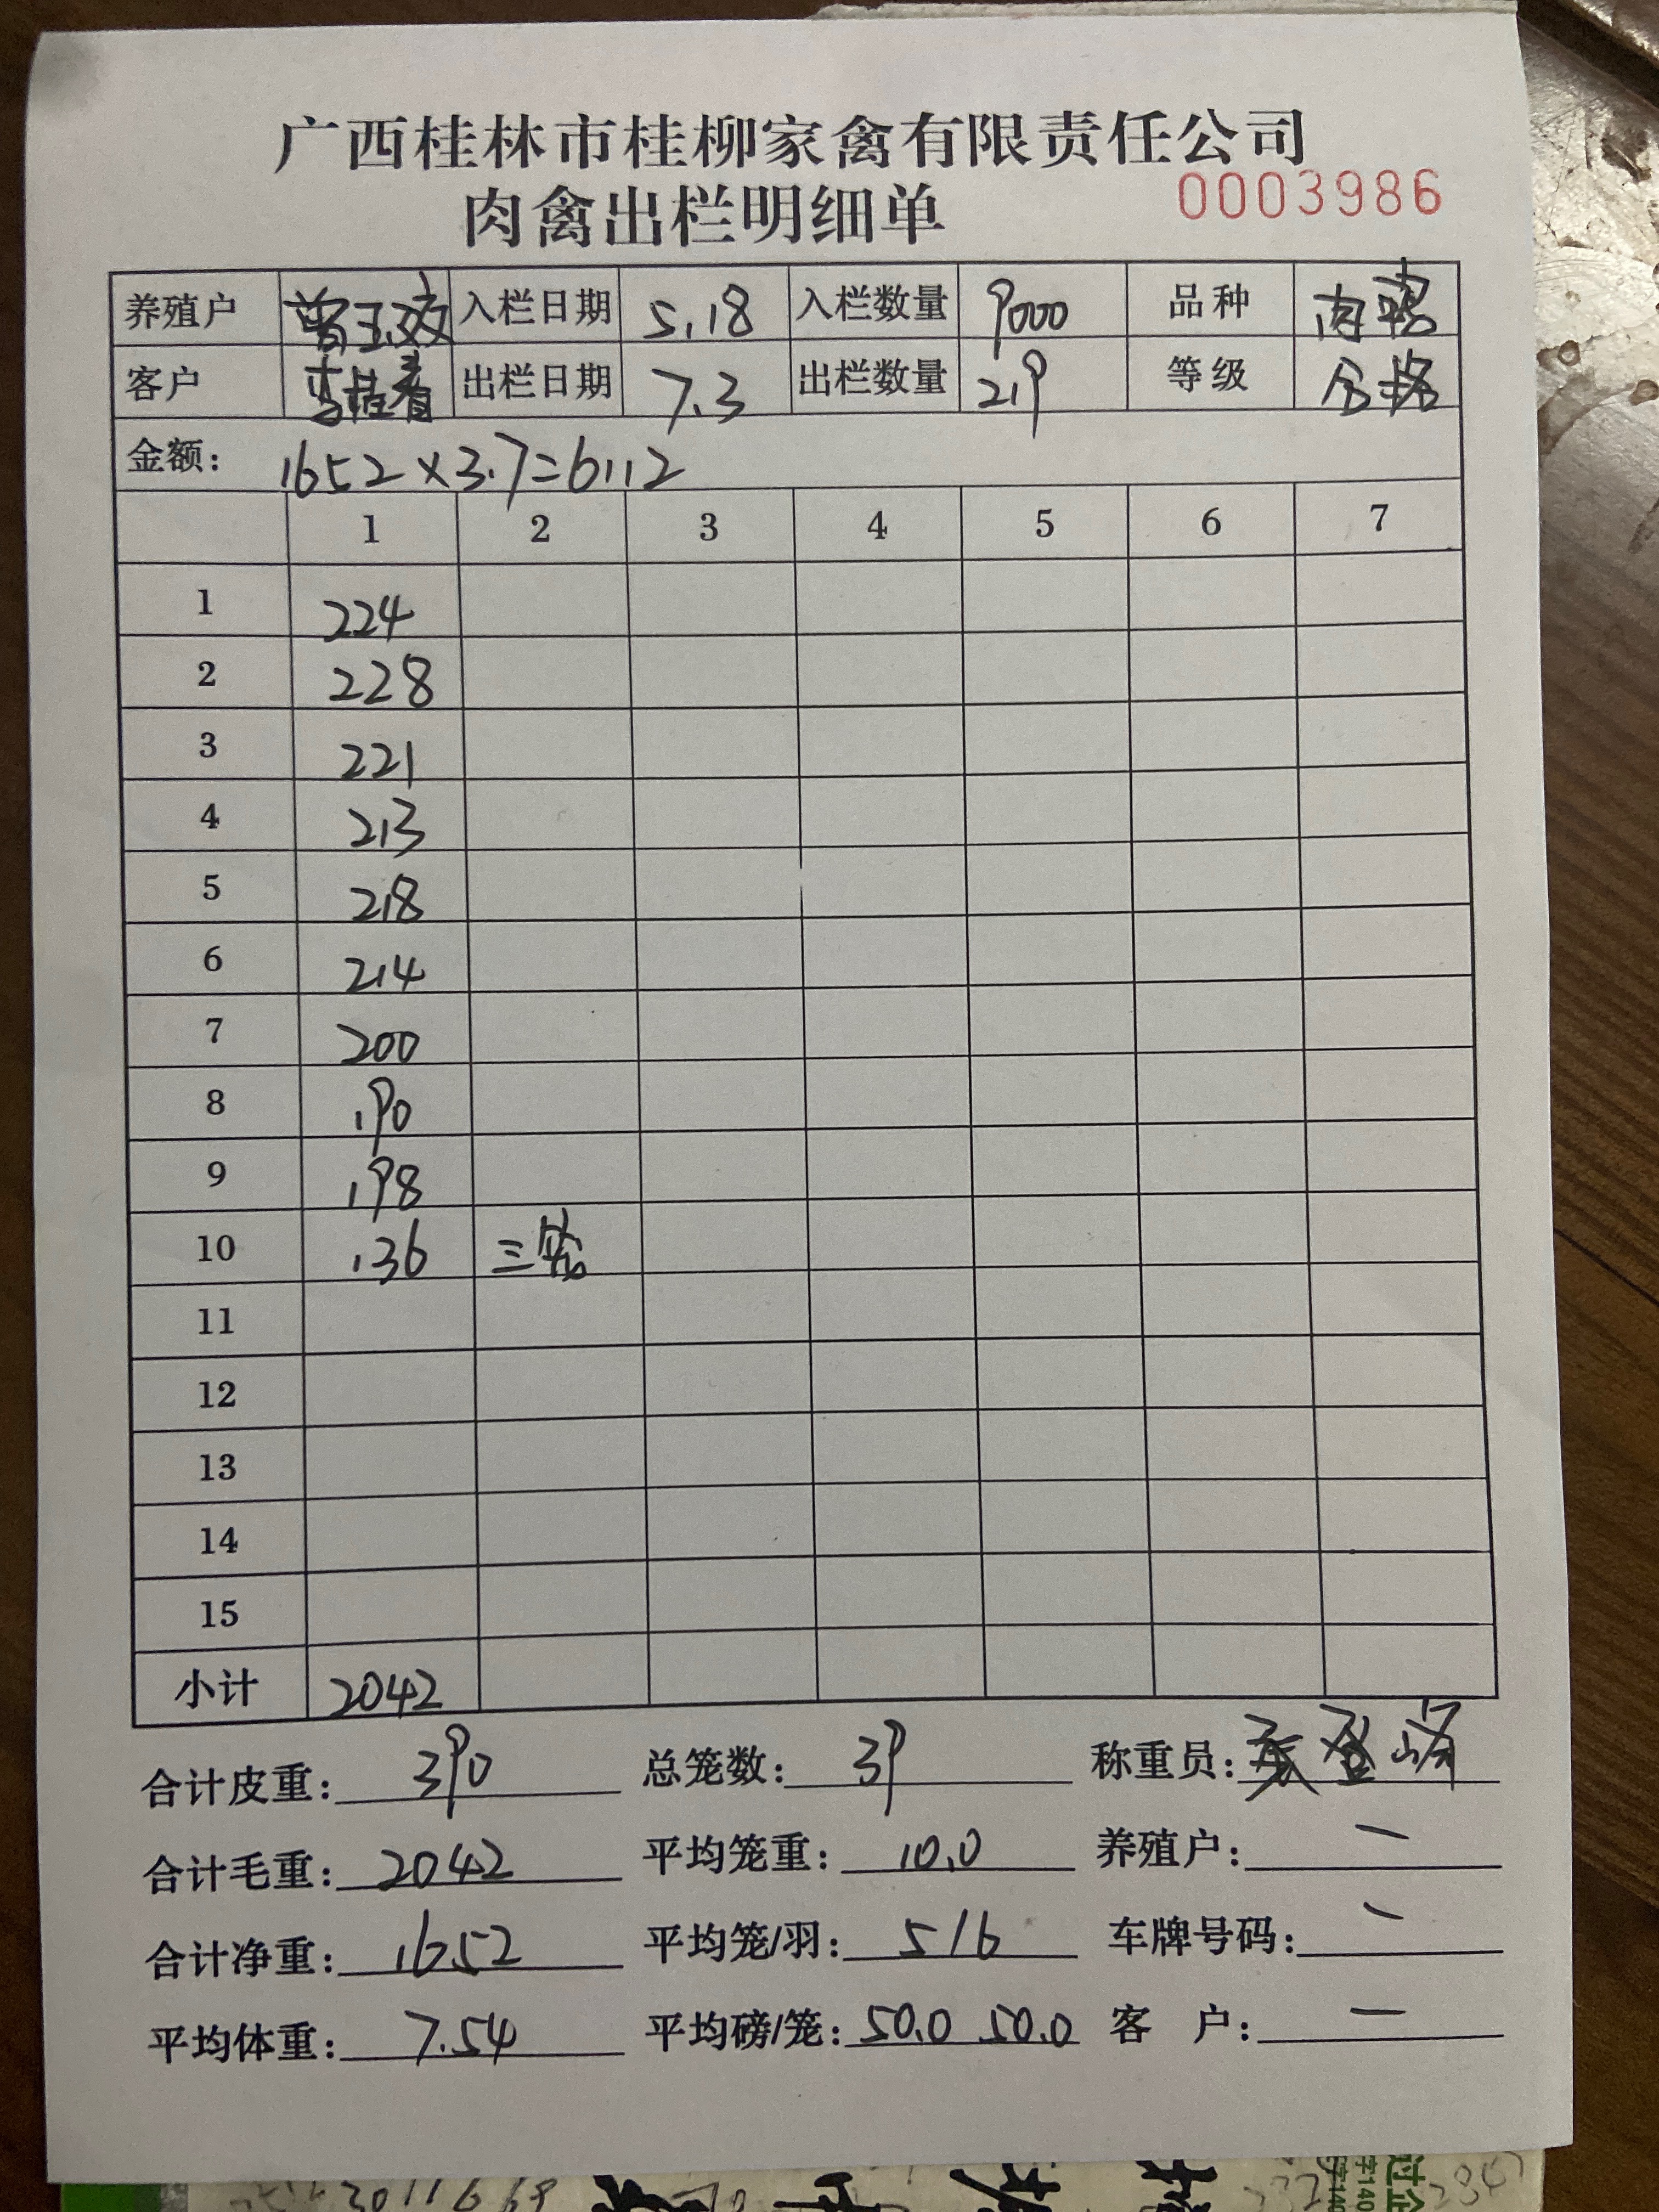 广西桂林市桂柳家禽有限责任公司
肉禽出栏明细单 0003986
养殖户 曾玉姣 入栏日期 5.18 入栏数量 9000 品种 肉鸭
客户 出栏日期 7.3 出栏数量 219 等级 合格
金额： 1652×3.7=6112
1 2 3 4 5 6 7
1 224
2 228
3 221
4 213
5 218
6 214
7 200
8 190
9 198
10 136 三笼
11
12
13
14
15
小计 2042
合计皮重： 390 总笼数： 39 称重员：
合计毛重： 2042 平均笼重： 10.0 养殖户： 一
合计净重： 1652 平均笼/羽： 5/6 车牌号码： 一
平均体重： 7.54 平均磅/笼： 50.0 50.0 客 户： 一
3011668